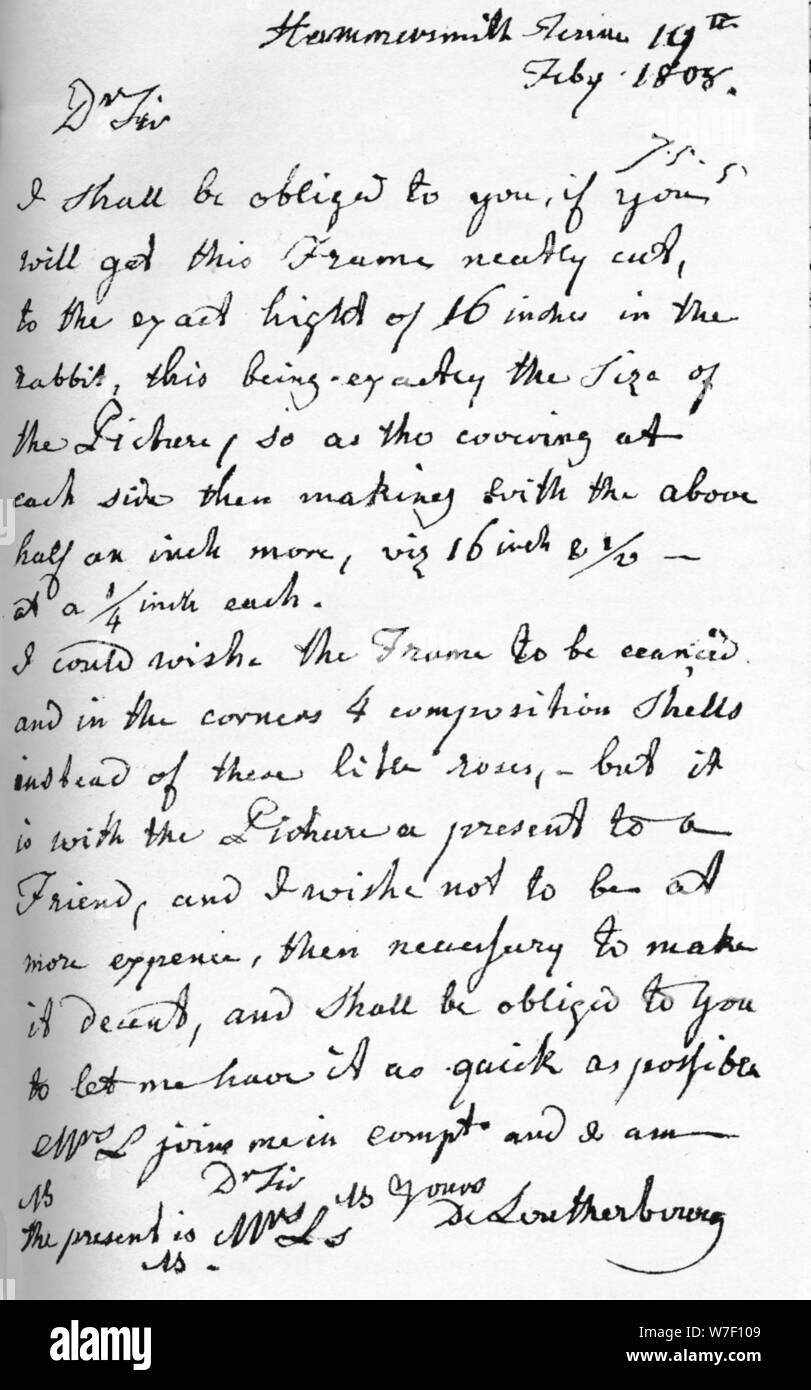 Hammersmith Terrace 19th
Feby 1808.
Dr Sir
7.5.5
I Shall be obliged to you, if you
will get this Frame neatly cut,
to the exact hight of 16 inches in the
rabbit, this being exactly the Size of
the Picture, so as tho covering at
each side then making with the above
half an inch more, viz 16 inch & 1/2 —
at a 1/4 inch each.
I could wishe the Frame to be
and in the corners 4 composition Shells
instead of these little roses, – but it
is with the Picture a present to a
Friend, and I wishe not to be at
more expence, then necessary to make
it decent, and Shall be obliged to You
to let me have it as quick as possible
Mrs L joins me in compts and I am
Dr Sir
NB NB Yours
the present is Mrs Ls De Loutherbourg
NB.
alamy
a
alamy
Image ID: W7F109
www.alamy.com